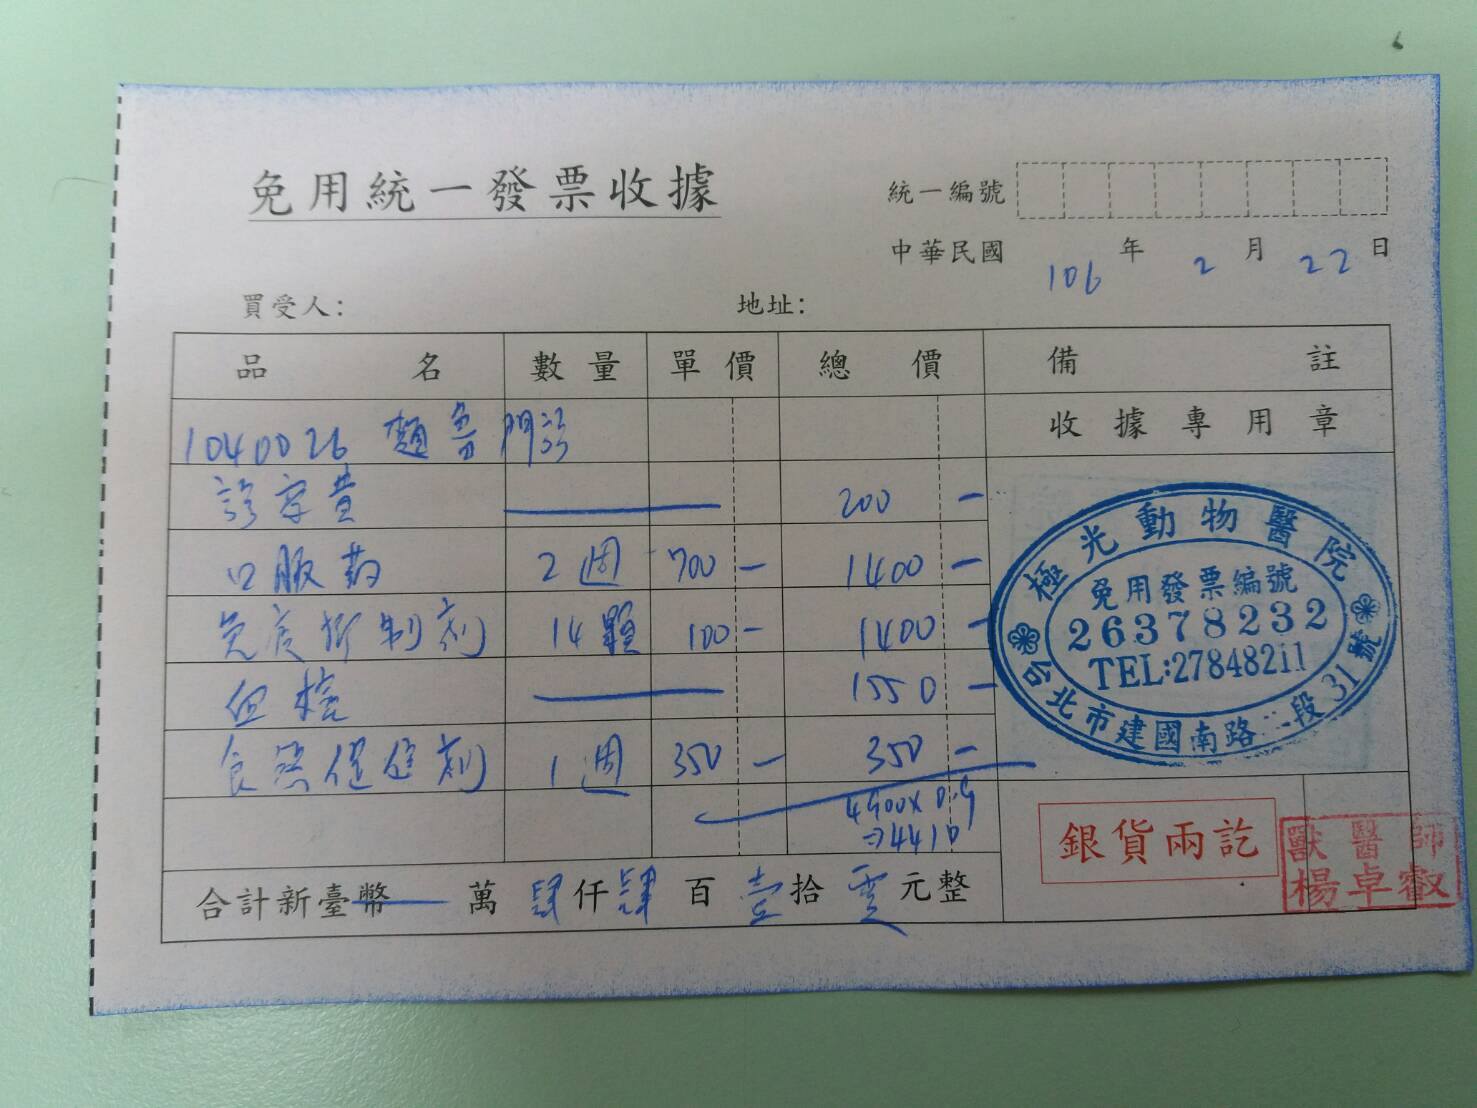 免用統一發票收據
統一編號
中華民國 106 年 2 月 22 日
買受人： 地址：
品名 數量 單價 總價 備註
1040026 麵 門診
收據專用章
診察費 200 -
口服葯 2週 700 - 1400 -
免疫抑制劑 14顆 100 - 1400 -
血檢 1550 -
保健劑 1週 350 - 350 -
4900×0.9
=4410
合計新臺幣 萬 肆仟肆百壹拾零元整
極光動物醫院
免用發票編號
26378232
TEL:27848211
台北市建國南路二段31號
銀貨兩訖
獸醫師
楊卓叡